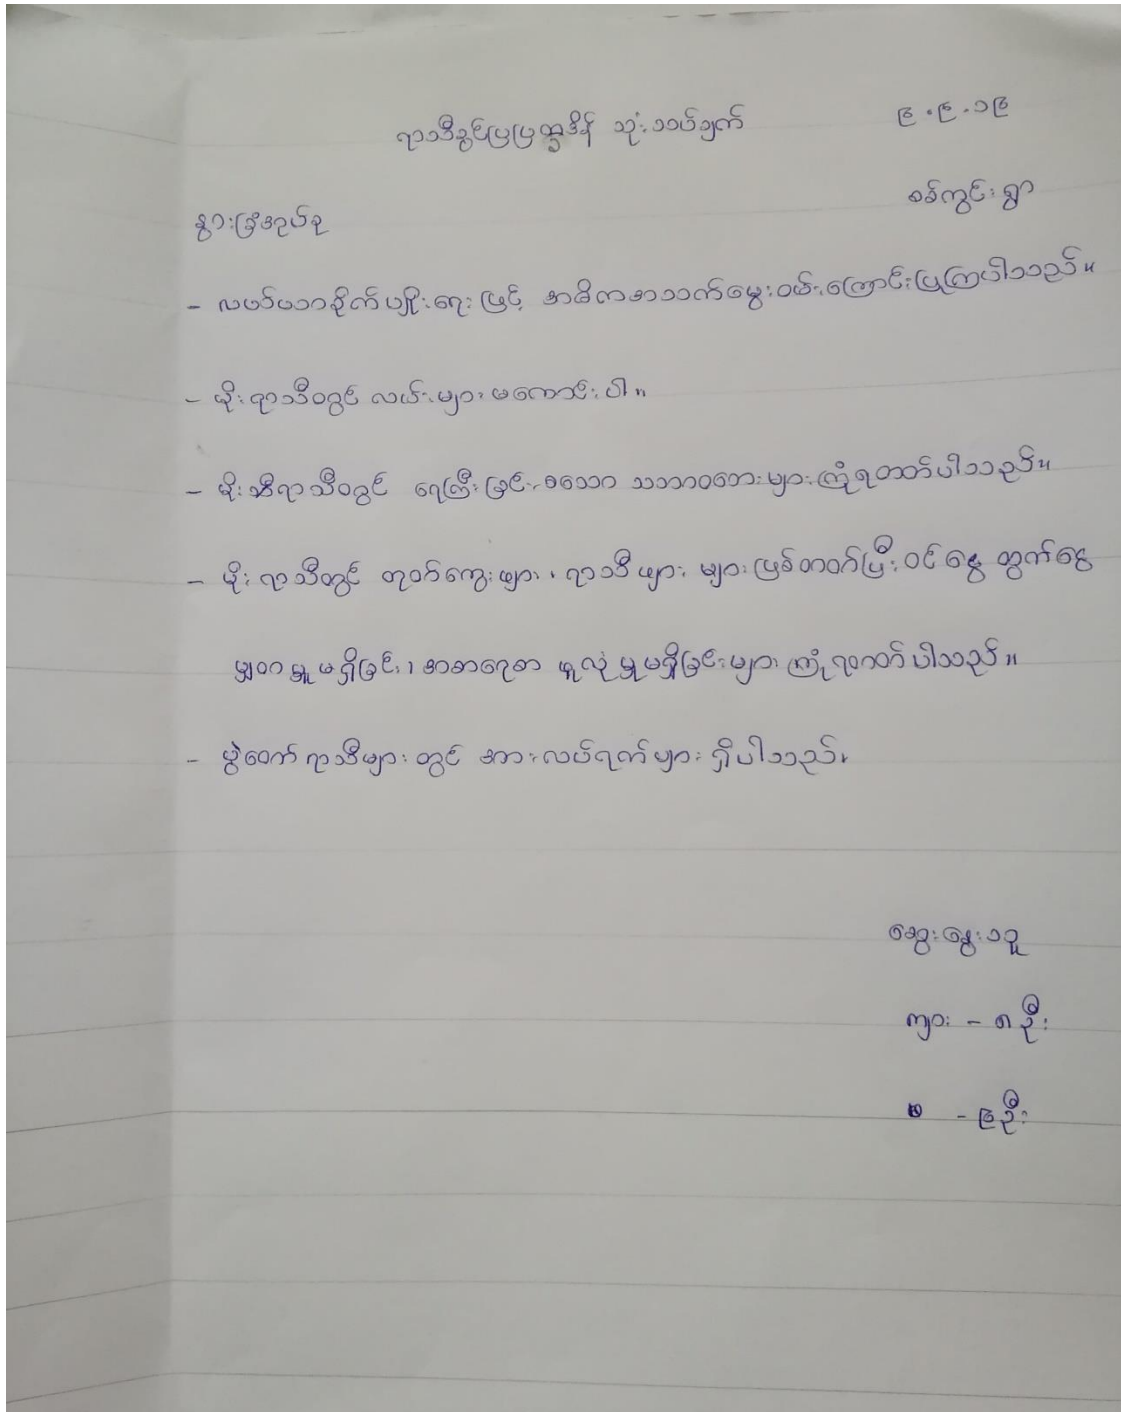 ရာသီခွင်ပြပြက္ခဒိန် သုံးသပ်ချက် ၉.၉.၁၉
စစ်ကွင်းရွာ
နွားခြံအုပ်စု
- လယ်ယာစိုက်ပျိုးရေးဖြင့် အဓိကအသက်မွေးဝမ်းကြောင်းပြုကြပါသည်။
- မိုးရာသီတွင် လမ်းများမကောင်းပါ။
- မိုးရာသီတွင် ရေကြီးခြင်းစသော သဘာဝဘေးများကြုံရတတ်ပါသည်။
- မိုးရာသီတွင် တုပ်ကွေးဖျား၊ ရာသီဖျား များဖြစ်တတ်ပြီးဝင်ငွေ ထွက်ငွေ
မျှတမှုမရှိခြင်း၊ အစာရေစာ ဖူလုံမှုမရှိခြင်းများ ကြုံရတတ်ပါသည်။
- ပွဲတော်ရာသီများတွင် အားလပ်ရက်များ ရှိပါသည်။
ဆွေးနွေးသူ
ကျား - ၈ဦး
မ - ၉ဦး